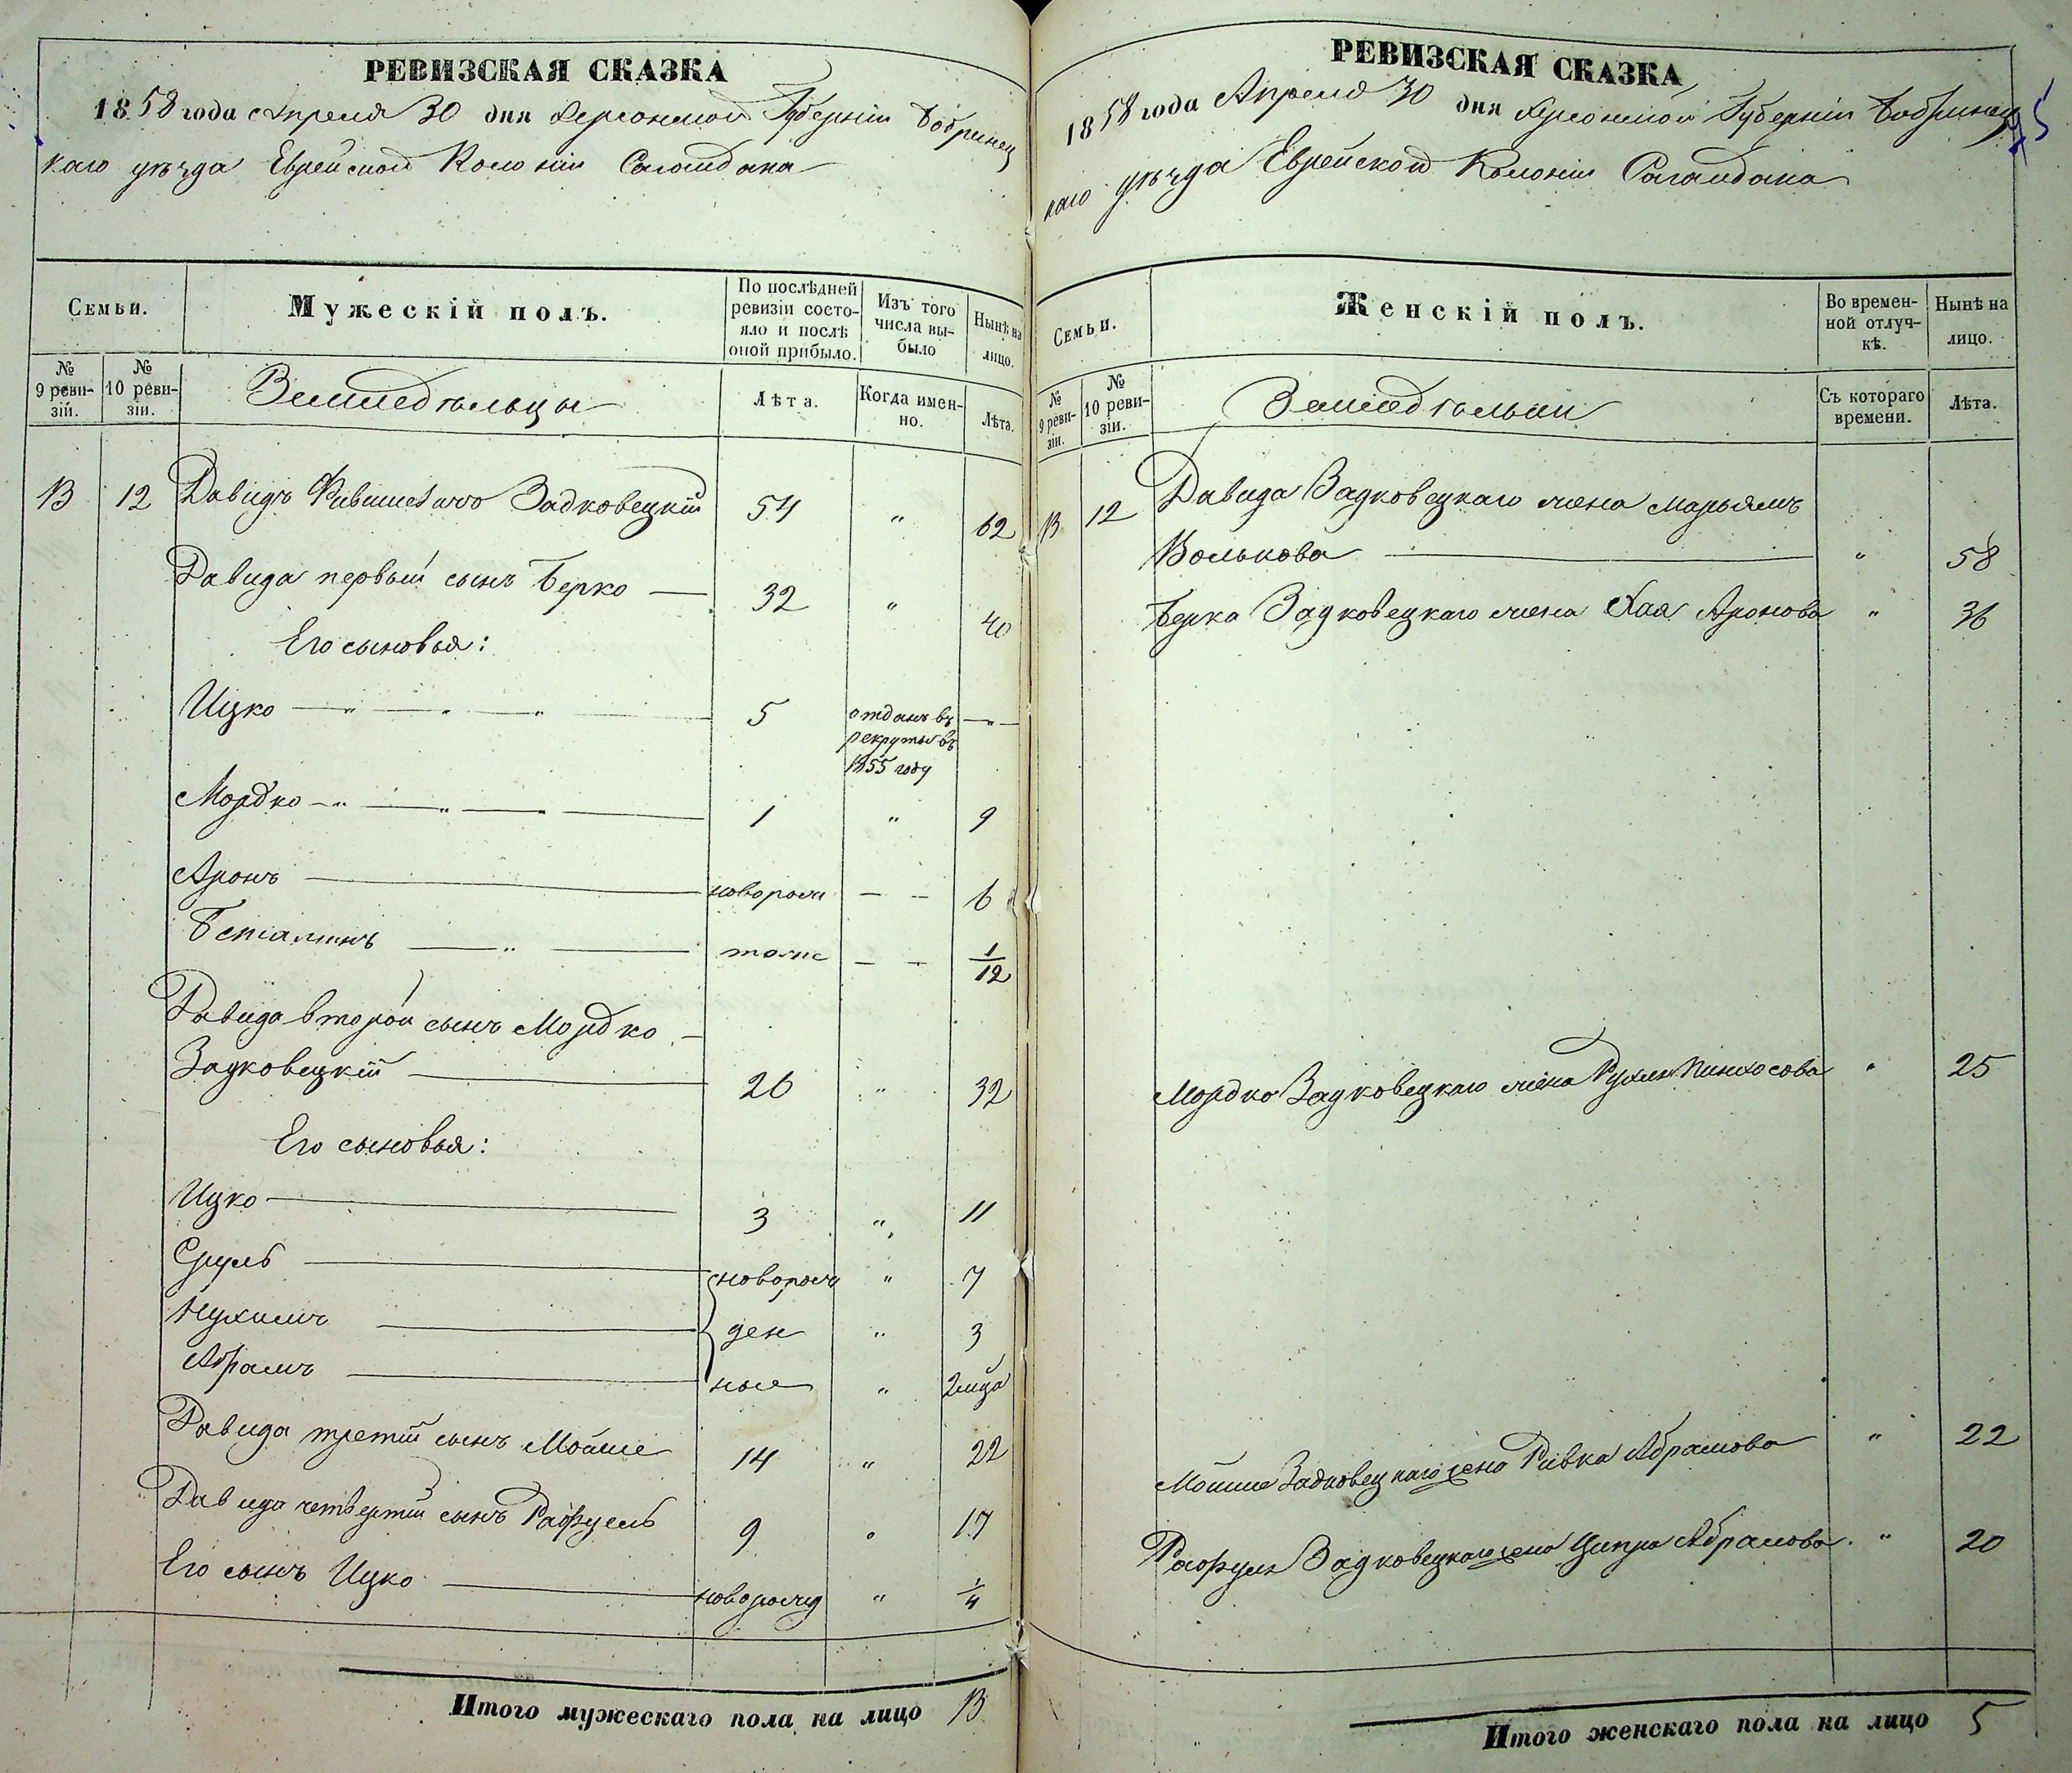 РЕВИЗСКАЯ СКАЗКА
1858 года Апреля 30 дня Херсонской Губерніи Бобринец
каго уѣзда Еврейской Колоніи Сагайдака
Семьи.
Мужескій полъ.
По послѣдней ревизіи состояло и послѣ оной прибыло.
Изъ того числа выбыло
Нынѣ на лицо.
№ 9 ревизіи.
№ 10 ревизіи.
Земледѣльцы
Лѣта.
Когда именно.
Лѣта.
13 12 Давидъ Задковецкій 54 " 62
Давида первый сынъ Берко — 32 " 40
Его сыновья:
Ицко — " — " — " — 5 отданъ въ рекруты въ 1855 году — " —
Мордко — " — " — " — 1 " 9
Аронъ — новорож — — 6
Беніаминъ — " — тоже — — 1/12
Давида второй сынъ Мордко —
Задковецкій — 26 " 32
Его сыновья:
Ицко — 3 " 11
Сруль — новорож " 7
Нухимъ — ден " 3
Абрамъ — ные " 2 мца
Давида третій сынъ Мойше 14 " 22
Давида четвертый сынъ Рафуель 9 " 17
Его сынъ Ицко — новорожд " 1/4
Итого мужескаго пола на лицо 13
РЕВИЗСКАЯ СКАЗКА
1858 года Апреля 30 дня Херсонской Губерніи Бобринец
каго уѣзда Еврейской Колоніи Сагайдака
Семьи.
Женскій полъ.
Во временной отлучкѣ.
Нынѣ на лицо.
№ 9 ревизіи.
№ 10 ревизіи.
Съ котораго времени.
Лѣта.
13 12 Давида Задковецкаго жена Марьямъ
Волькова — " 58
Берка Задковецкаго жена Хая Аронова " 36
Мордко Задковецкаго жена Рухля Пинхосова " 25
Мойше Задковецкаго жена Ривка Абрамова " 22
Рафуля Задковецкаго жена Ципра Абрамова " 20
Итого женскаго пола на лицо 5